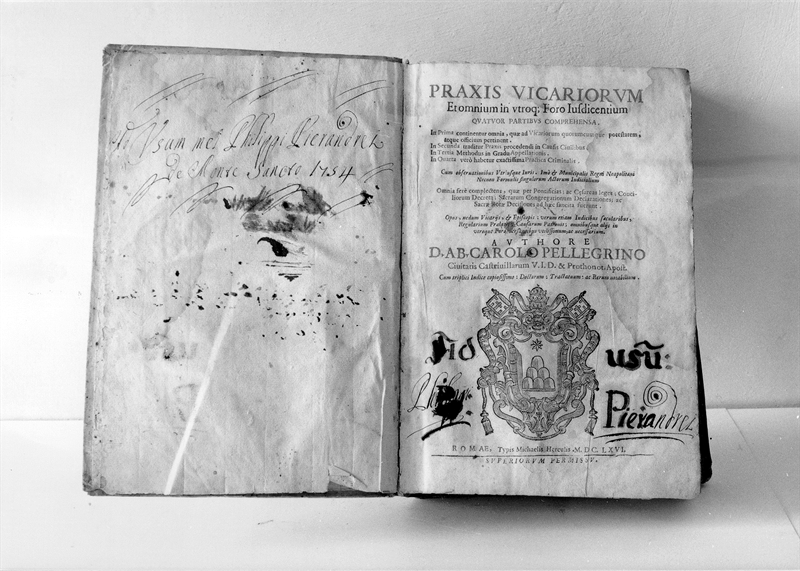 Ad Usum mei Philippi Pierandrez
De Monte Sancto 1754
PRAXIS VICARIORVM
Et omnium in vtroq; Foro Iusdicentium
QVATVOR PARTIBVS COMPREHENSA.
In Prima continentur omnia, quæ ad Vicariorum quorumcumque potestatem,
atque officium pertinent.
In Secunda traditur Praxis procedendi in Causis Ciuilibus.
In Tertia Methodus in Gradu Appellationis.
In Quarta verò habetur exactissima Practica Criminalis.
Cum obseruationibus Vtriusque Iuris. Imò & Municipalis Regni Neapolitani
Necnon Formulis singulorum Actorum Iudicialium
Omnia ferè complectens, quæ per Pontificias; ac Cæsareas leges; Conci-
liorum Decreta; Sacrarum Congregationum Declarationes; ac
Sacræ Rotæ Decisiones ad hæc sancita fuerunt.
Opus, nedum Vicarijs, & Episcopis; verum etiam Iudicibus sæcularibus,
Regularium Prælatis, Causarum Patronis; omnibusque alijs in
vtroque Foro versantibus vtilissimum, ac necessarium.
AVTHORE
D. AB. CAROLO PELLEGRINO
Ciuitatis Castrouillarum V. I. D. & Prothonot. Apost.
Cum triplici Indice copiosissimo; Doctorum; Tractatuum; ac Rerum notabilium.
Ad usū:
Pierandrez
ROMAE, Typis Michaelis Herculis. M. DC. LXVI.
SVPERIORVM PERMISSV.